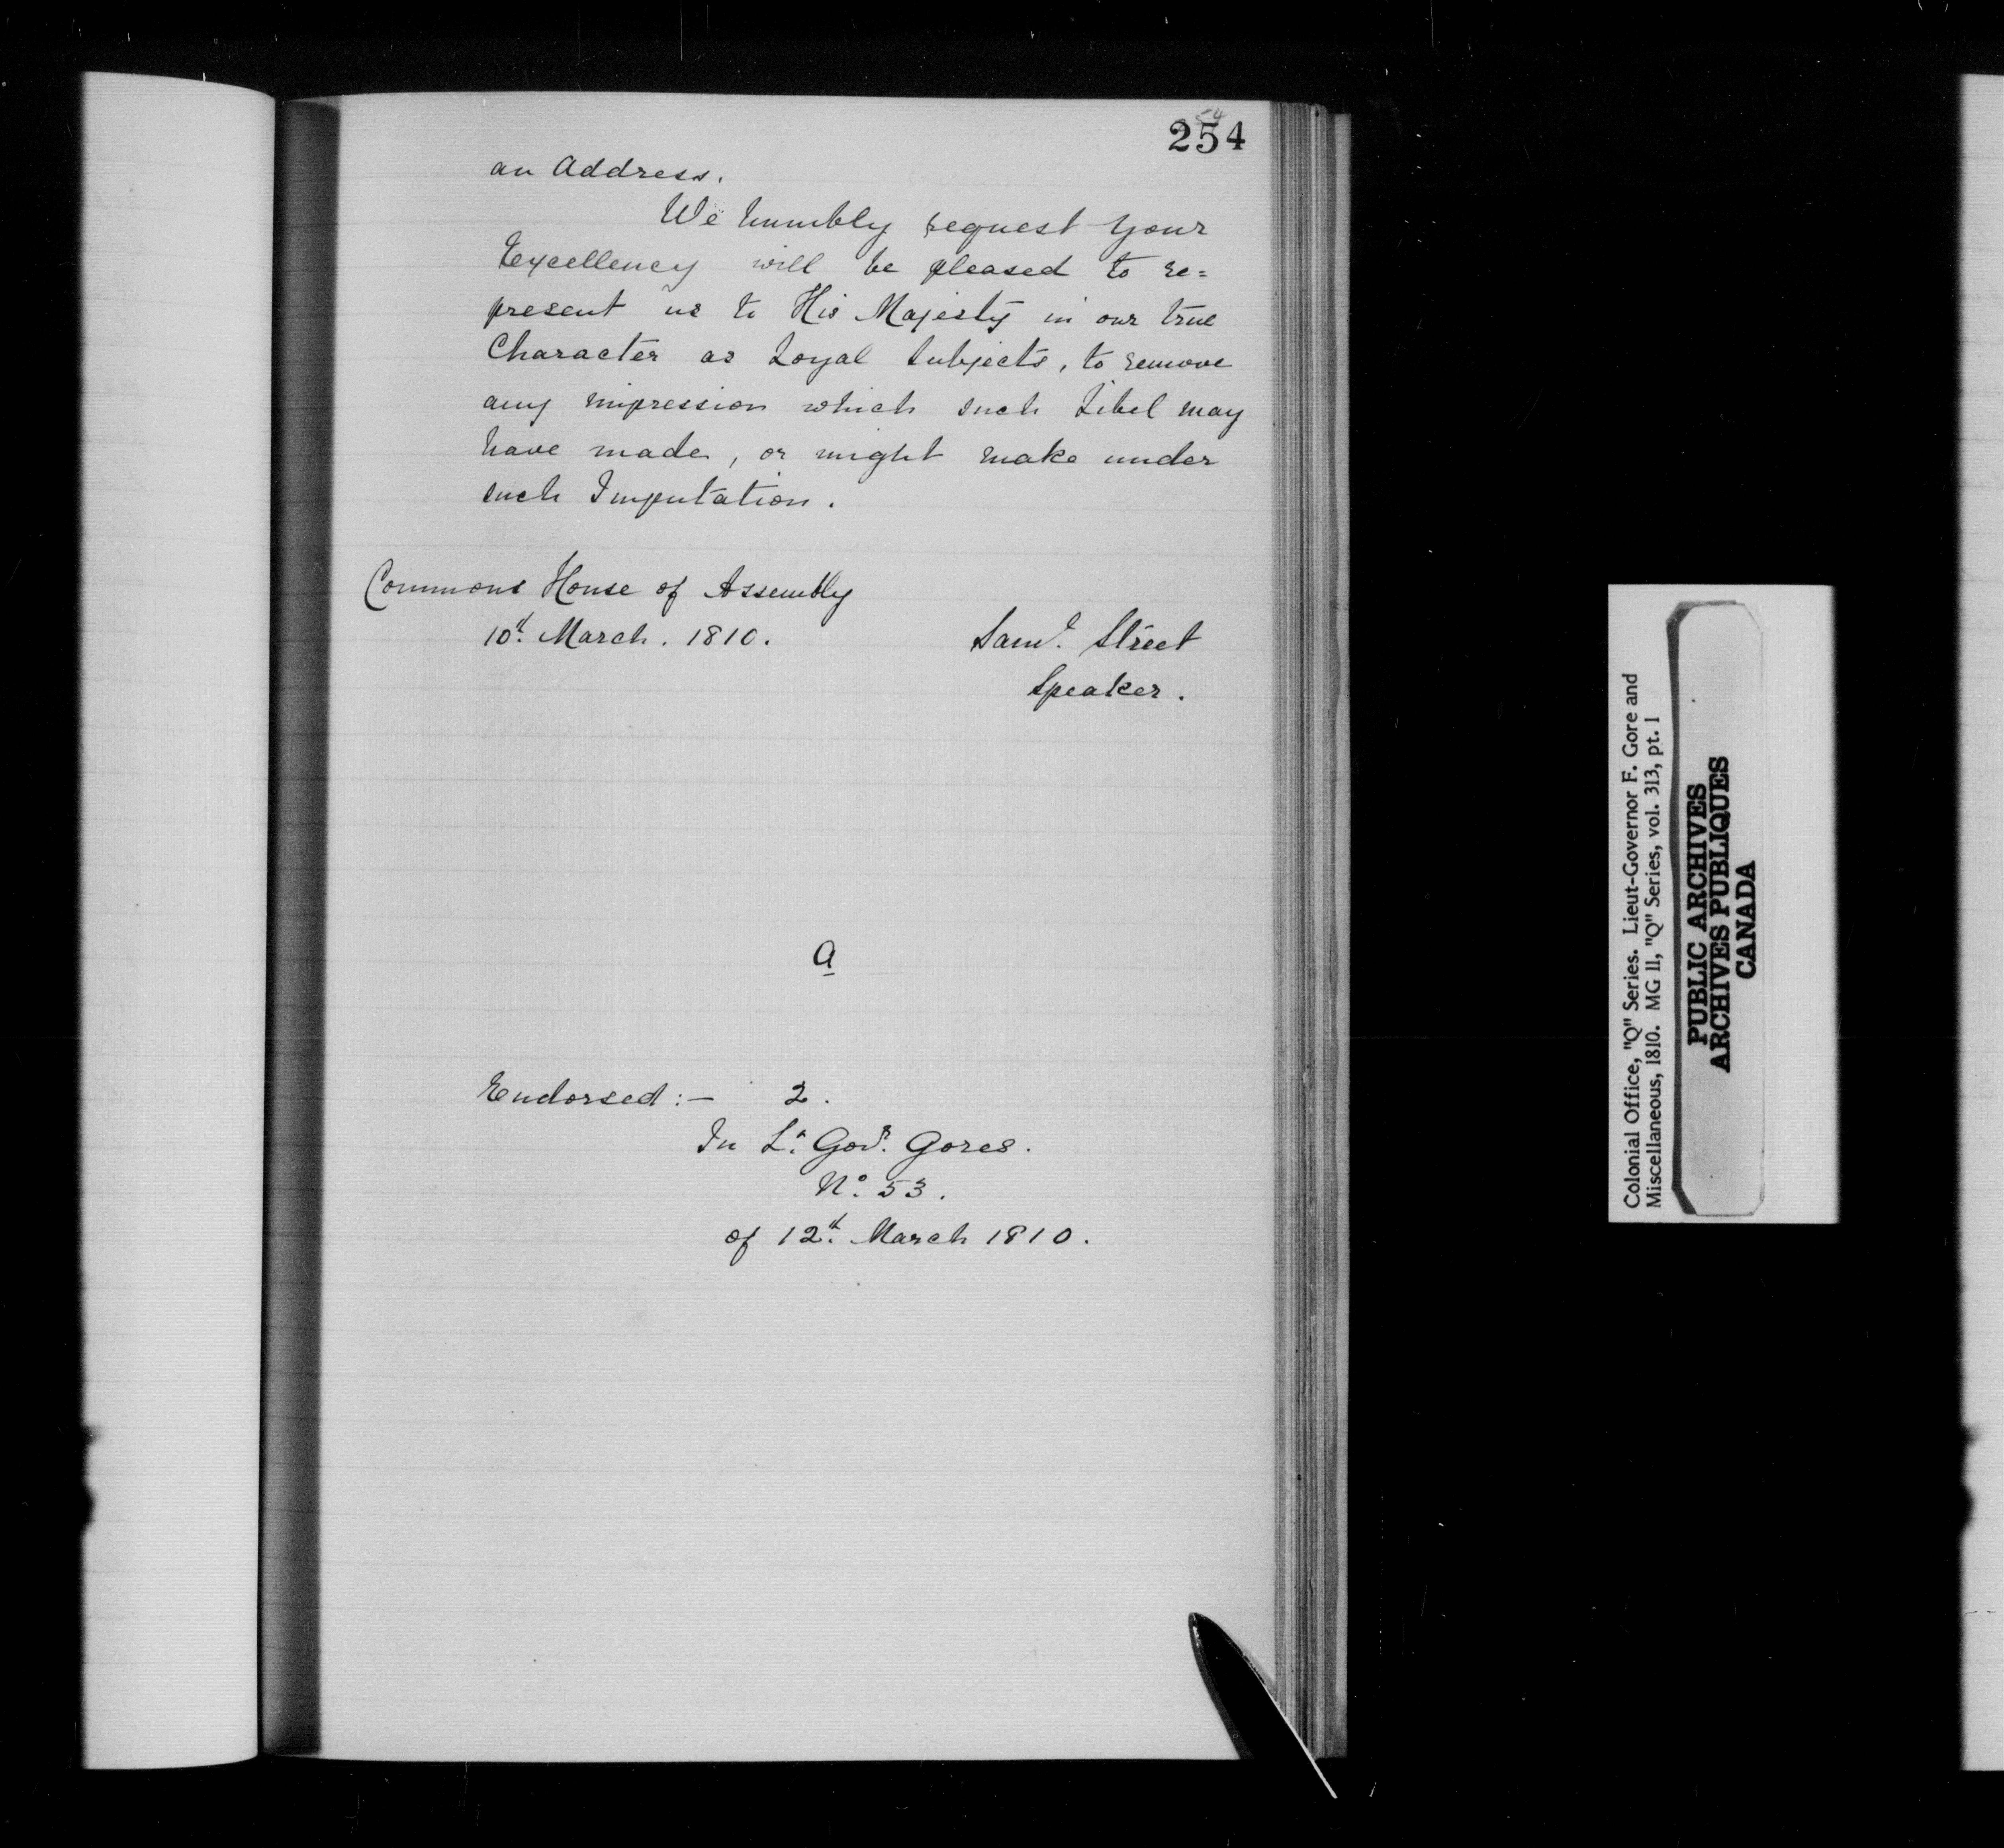 254
an Address.
We humbly request Your
Excellency will be pleased to re=
present us to His Majesty in our true
Character as Loyal Subjects, to remove
any impression which such Libel may
have made, or might make under
such Imputation.
Commons House of Assembly
10th March. 1810.
Saml. Street
Speaker.
a
Endorsed:— 2.
In Lt. Govr. Gores.
No. 53.
of 12th March 1810.
Colonial Office, "Q" Series. Lieut-Governor F. Gore and
Miscellaneous, 1810. MG 11, "Q" Series, vol. 313, pt. 1
PUBLIC ARCHIVES
ARCHIVES PUBLIQUES
CANADA